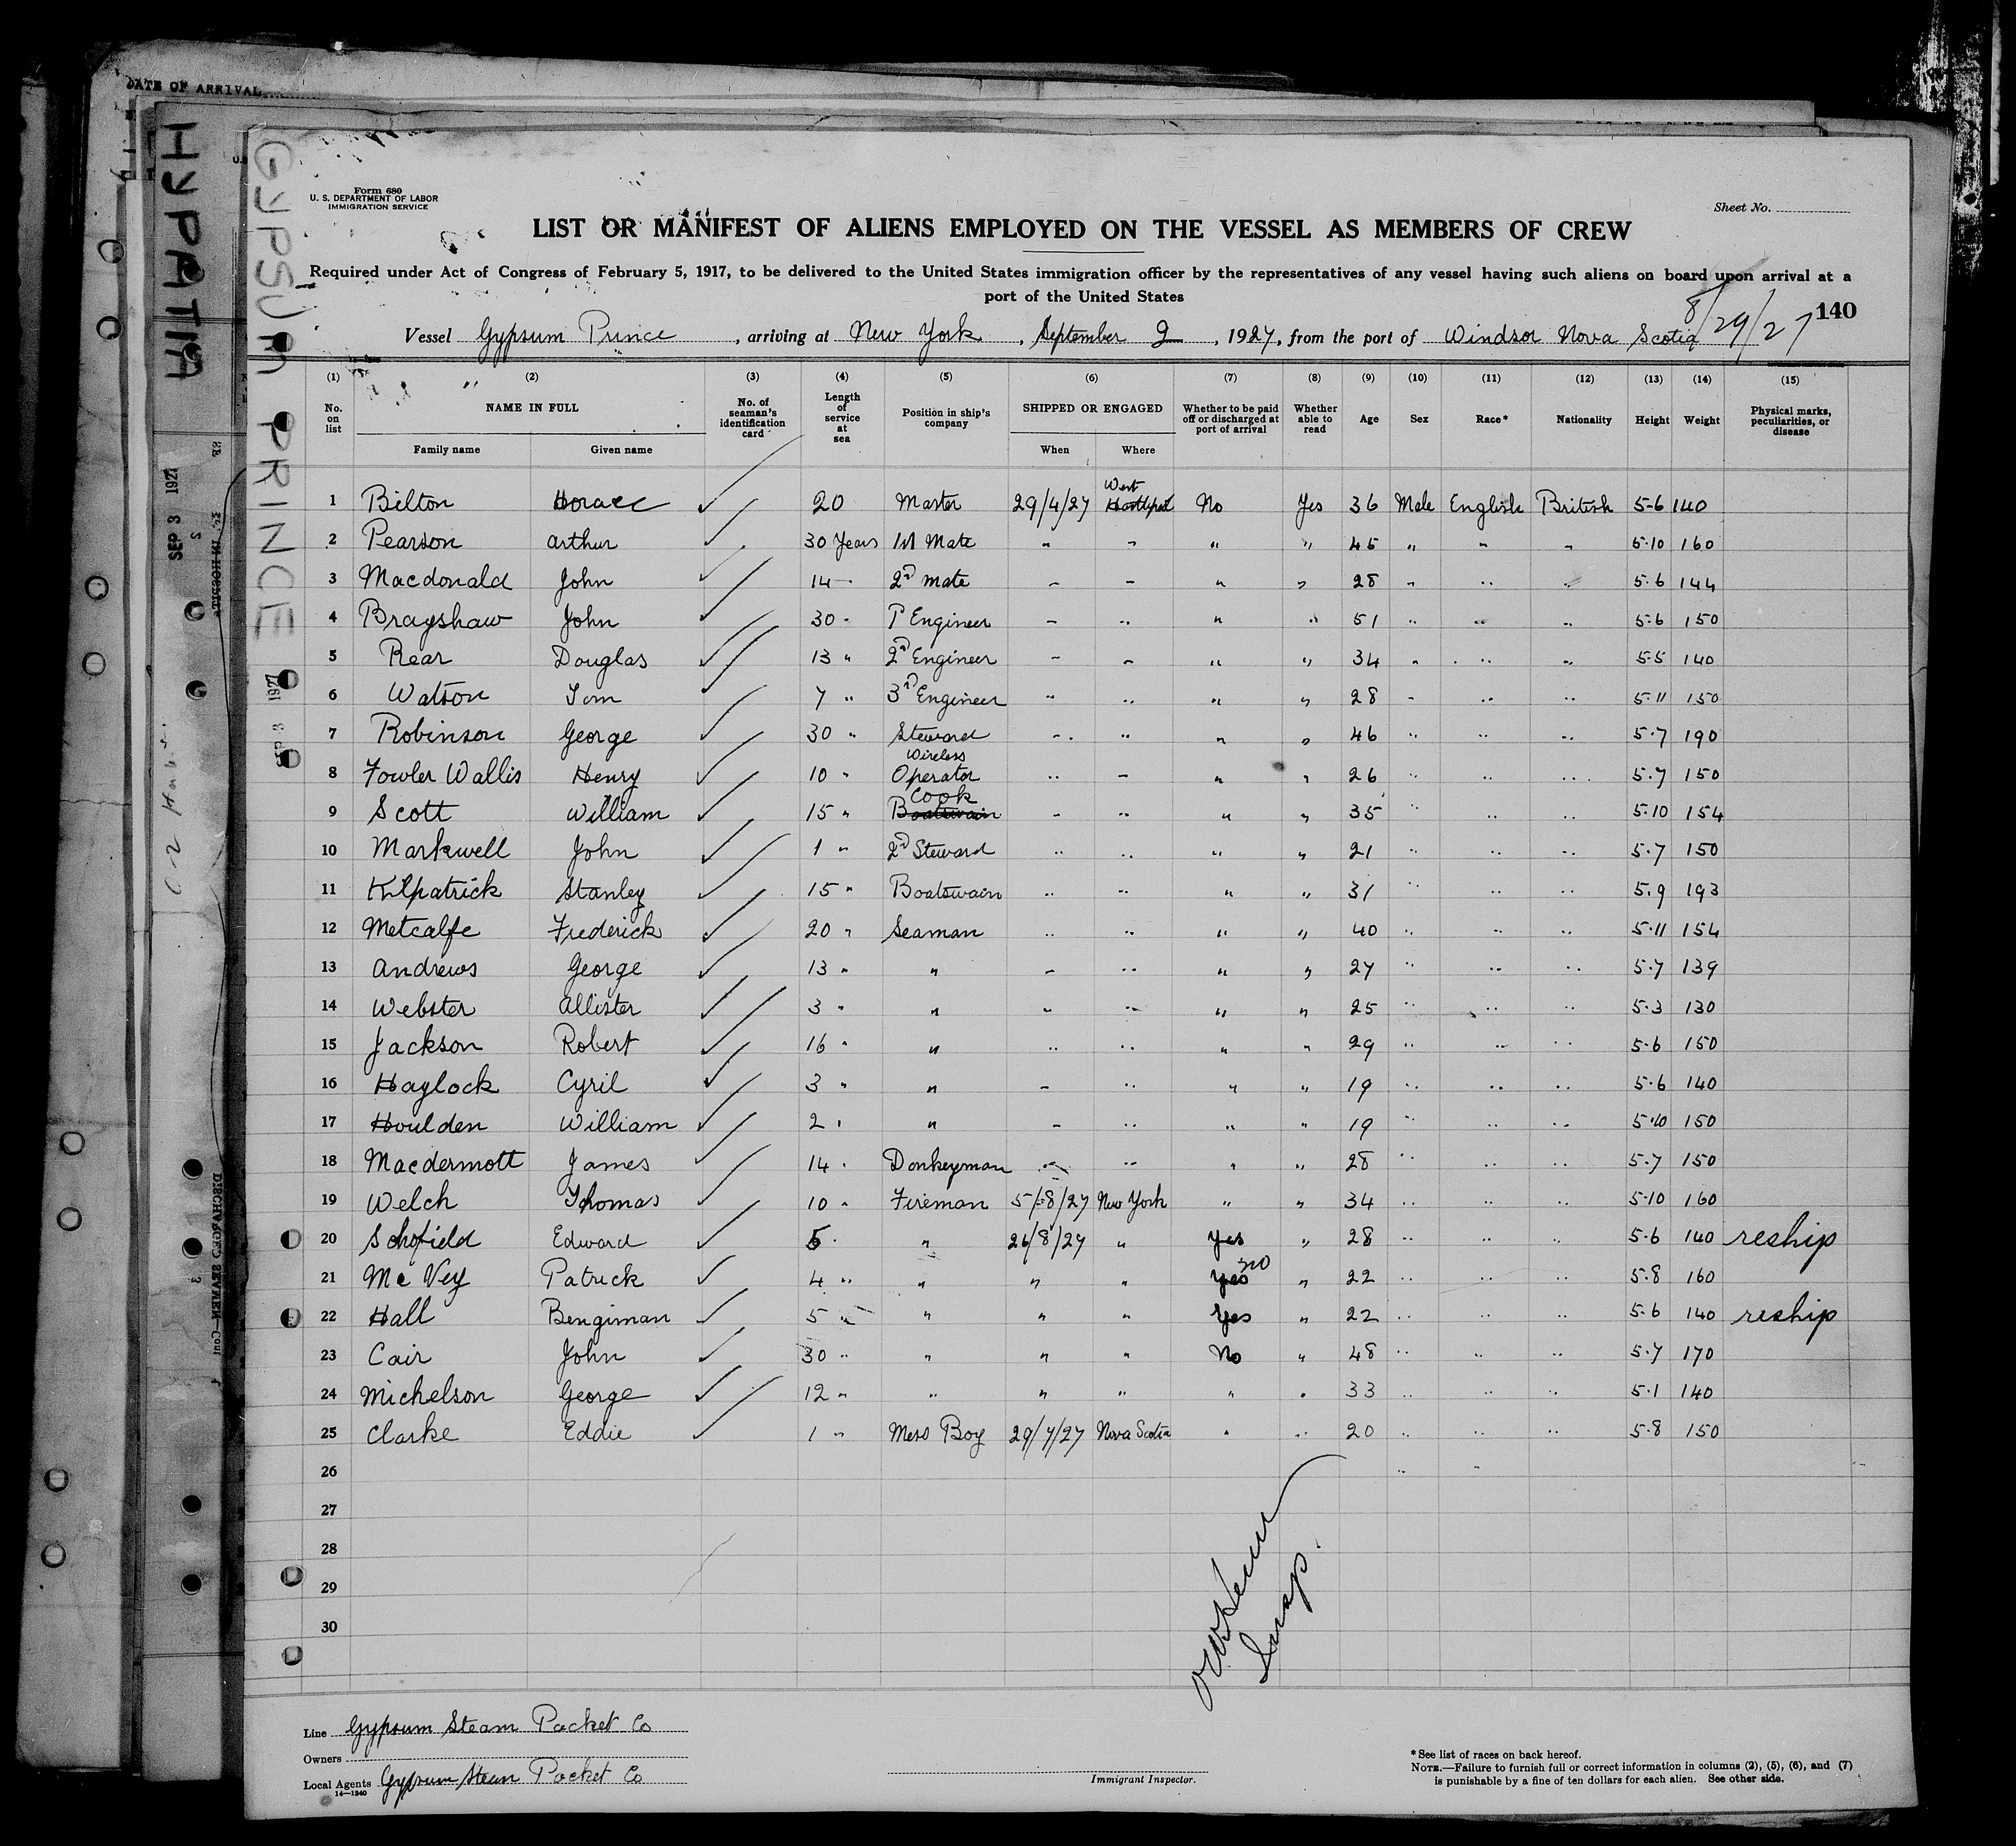 DATE OF ARRIVAL
HYPPATIA
SEP 3 1927
GYPSUM PRINCE
Form 680
U. S. DEPARTMENT OF LABOR
IMMIGRATION SERVICE
Sheet No.
LIST OR MANIFEST OF ALIENS EMPLOYED ON THE VESSEL AS MEMBERS OF CREW
Required under Act of Congress of February 5, 1917, to be delivered to the United States immigration officer by the representatives of any vessel having such aliens on board upon arrival at a
port of the United States
8/29/27 140
Vessel Gypsum Prince, arriving at New York, September 2, 1927, from the port of Windsor Nova Scotia
(1) (2) (3) (4) (5) (6) (7) (8) (9) (10) (11) (12) (13) (14) (15)
No. on list NAME IN FULL No. of seaman's identification card Length of service at sea Position in ship's company SHIPPED OR ENGAGED Whether to be paid off or discharged at port of arrival Whether able to read Age Sex Race* Nationality Height Weight Physical marks, peculiarities, or disease
Family name Given name When Where
1 Bilton Horace 20 Master 29/4/27 West Hartlepool No Yes 36 Male English British 5-6 140
2 Pearson Arthur 30 Years 1st Mate " " " " 45 " " " 5.10 160
3 Macdonald John 14 " 2nd Mate " " " " 28 " " " 5.6 144
4 Brayshaw John 30 " 1st Engineer " " " " 51 " " " 5.6 150
5 Rear Douglas 13 " 2nd Engineer " " " " 34 " " " 5.5 140
6 Watson Tom 7 " 3rd Engineer " " " " 28 " " " 5.11 150
7 Robinson George 30 " Steward " " " " 46 " " " 5.7 190
8 Fowler Wallis Henry 10 " Wireless Operator " " " " 26 " " " 5.7 150
9 Scott William 15 " Boatswain Cook " " " " 35 " " " 5.10 154
10 Markwell John 1 " 2nd Steward " " " " 21 " " " 5.7 150
11 Kilpatrick Stanley 15 " Boatswain " " " " 31 " " " 5.9 193
12 Metcalfe Frederick 20 " Seaman " " " " 40 " " " 5.11 154
13 Andrews George 13 " " " " " " 27 " " " 5.7 139
14 Webster Allister 3 " " " " " " 25 " " " 5.3 130
15 Jackson Robert 16 " " " " " " 29 " " " 5.6 150
16 Haylock Cyril 3 " " " " " " 19 " " " 5.6 140
17 Houlden William 2 " " " " " " 19 " " " 5.10 150
18 Macdermott James 14 " Donkeyman " " " " 28 " " " 5.7 150
19 Welch Thomas 10 " Fireman 5/8/27 New York " " 34 " " " 5.10 160
20 Schofield Edward 5 " " 26/8/27 " Yes " 28 " " " 5.6 140 reship
21 Mc Vey Patrick 4 " " " " Yes no " 22 " " " 5.8 160
22 Hall Bengiman 5 " " " " Yes " 22 " " " 5.6 140 reship
23 Cair John 30 " " " " No " 48 " " " 5.7 170
24 Michelson George 12 " " " " " " 33 " " " 5.1 140
25 Clarke Eddie 1 " Mess Boy 29/7/27 Nova Scotia " " 20 " " " 5.8 150
26 " "
27
28
29
30
Insp.
Line Gypsum Steam Packet Co
Owners
Local Agents Gypsum Steam Packet Co
14—1240
Immigrant Inspector.
*See list of races on back hereof.
NOTE.—Failure to furnish full or correct information in columns (2), (5), (6), and (7)
is punishable by a fine of ten dollars for each alien. See other side.